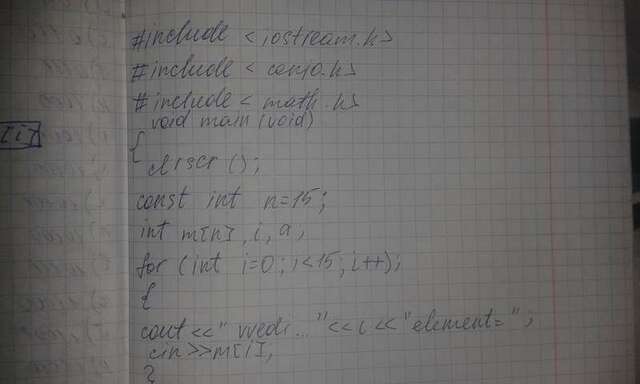 #include <iostream.h>
#include <conio.h>
#include <math.h>
void main (void)
[i]
{
clrscr ();
const int n=15;
int m[n], i, a;
for (int i=0; i<15; i++);
{
cout<<" vvedi..."<<i<<"element=";
cin>>m[i];
}